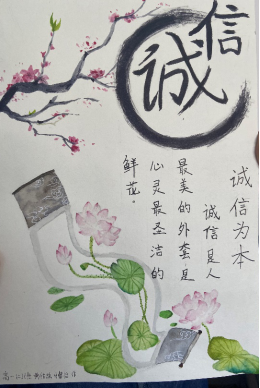 诚信
诚信为本
诚信是人
最美的外套是
心灵最圣洁的
鲜花。